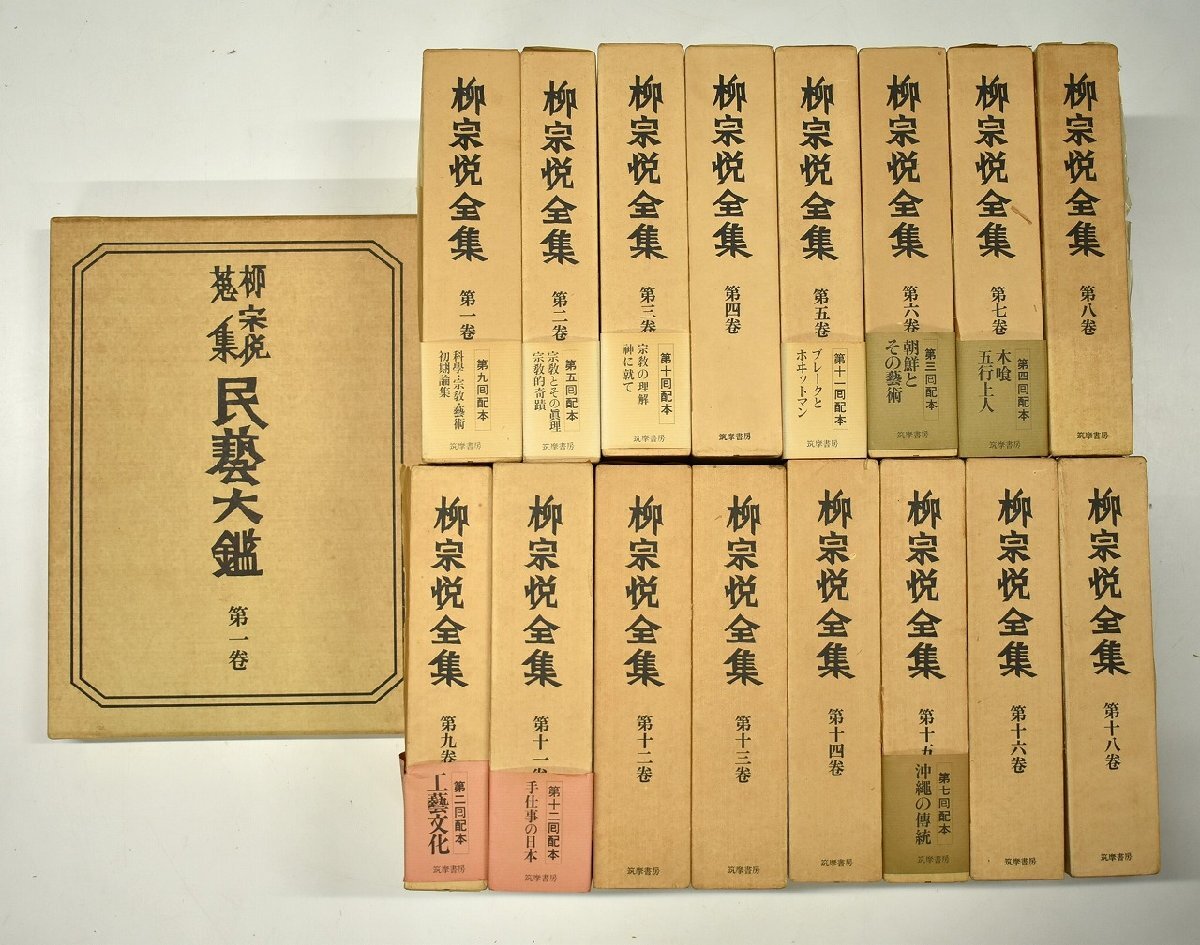 柳宗悦
蒐集
民藝大鑑
第一卷
柳宗悦全集
第一卷
第九回配本
科學・宗教・藝術
初期論集
筑摩書房
柳宗悦全集
第二卷
第五回配本
宗教とその眞理
宗教的奇蹟
筑摩書房
柳宗悦全集
第三卷
第十回配本
宗教の理解
神に就て
筑摩書房
柳宗悦全集
第四卷
筑摩書房
柳宗悦全集
第五卷
第十一回配本
ブレークと
ホヰットマン
筑摩書房
柳宗悦全集
第六卷
第三回配本
朝鮮と
その藝術
筑摩書房
柳宗悦全集
第七卷
第四回配本
木喰
五行上人
筑摩書房
柳宗悦全集
第八卷
筑摩書房
柳宗悦全集
第九卷
第二回配本
工藝文化
筑摩書房
柳宗悦全集
第十一卷
第十二回配本
手仕事の日本
筑摩書房
柳宗悦全集
第十二卷
筑摩書房
柳宗悦全集
第十三卷
筑摩書房
柳宗悦全集
第十四卷
筑摩書房
柳宗悦全集
第十五
第七回配本
沖繩の傳統
筑摩書房
柳宗悦全集
第十六卷
筑摩書房
柳宗悦全集
第十八卷
筑摩書房